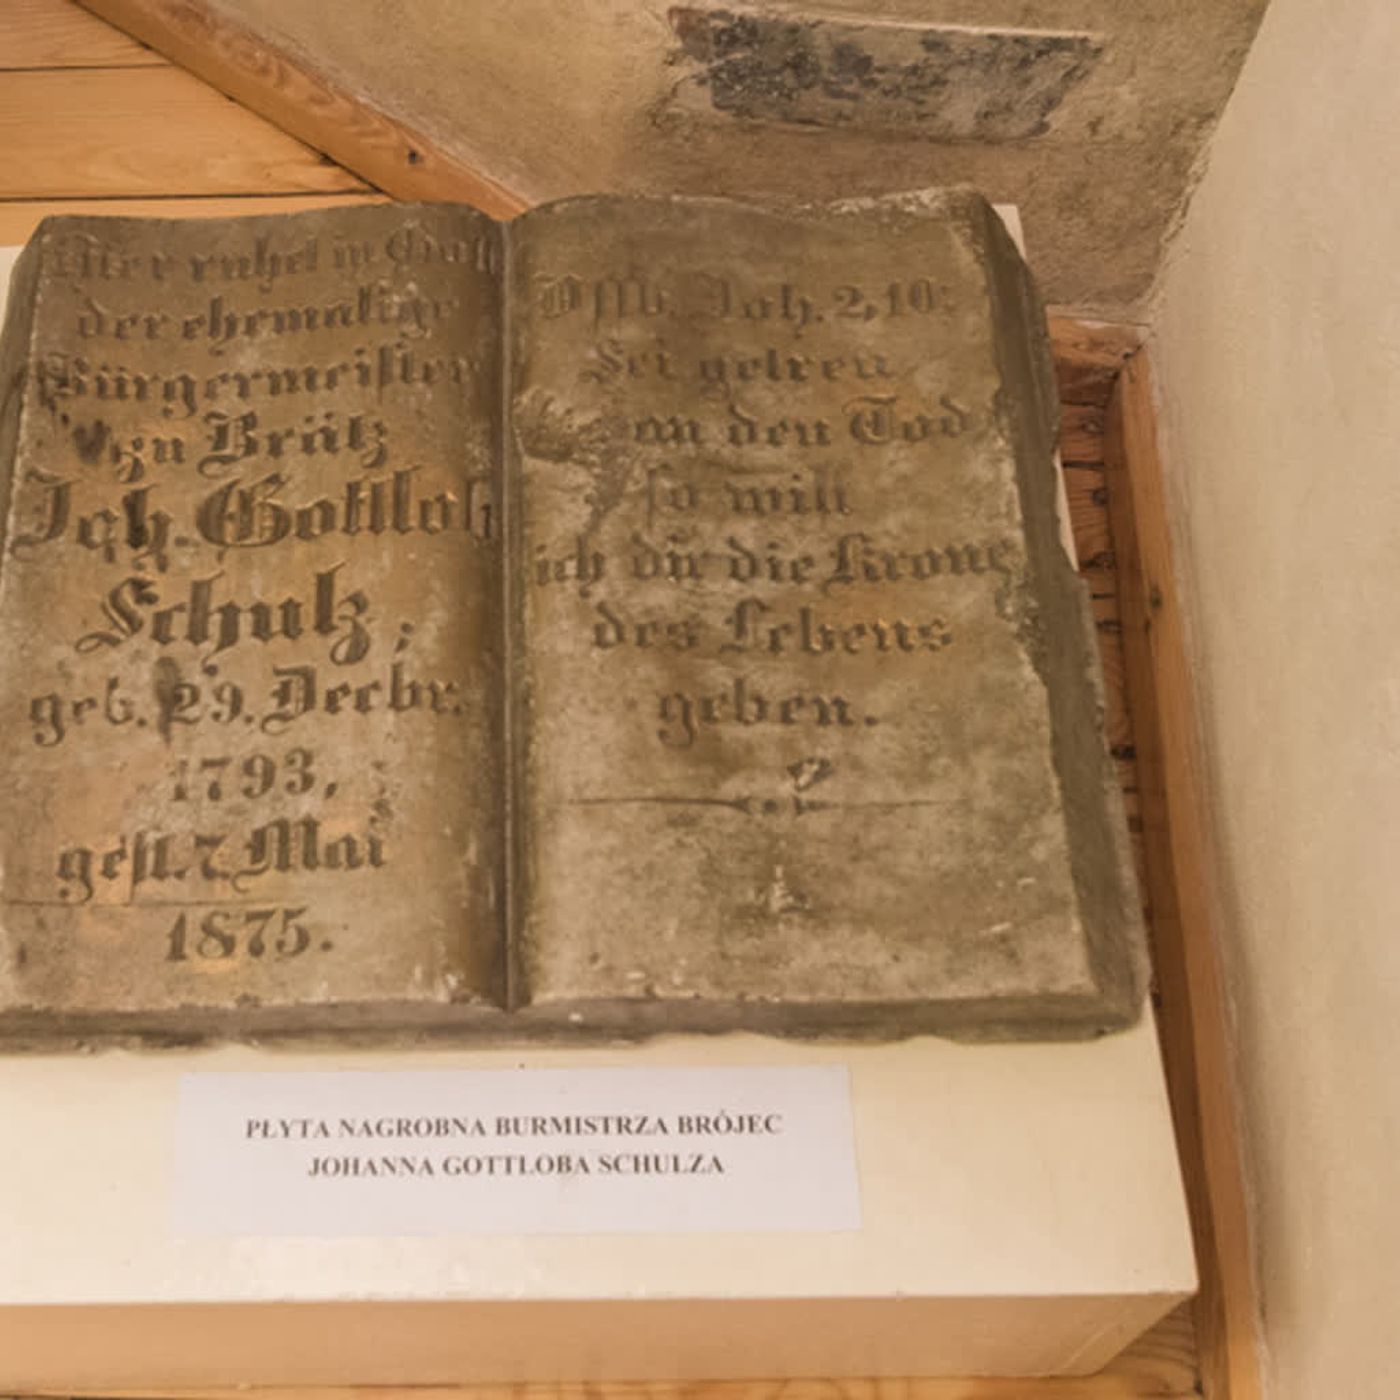 Hier ruhet in Gott
der ehemalige
Bürgermeister
von Brätz
Joh. Gottlob
Schulz,
geb. 29. Decbr.
1793,
gest. 7. Mai
1875.
Offb. Joh. 2,10:
Sei getreu
an den Tod
so will
ich dir die Krone
des Lebens
geben.
PŁYTA NAGROBNA BURMISTRZA BRÓJEC
JOHANNA GOTTLOBA SCHULZA